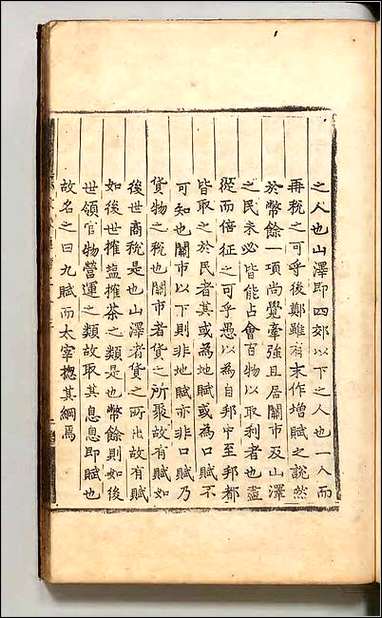 之人也山澤即四郊以下之人也一人而
再稅之可乎後鄭雖有末作增賦之說然
於幣餘一項尚覺牽強且居關市及山澤
之民未必皆能占會百物以取利者也盡
從而倍征之可乎愚以為自邦中至邦都
皆取之於民者其或為地賦或為口賦不
可知也關市以下則非地賦亦非口賦乃
貨物之稅也關市者貨之所聚故有賦如
後世商稅是也山澤者貨之所出故有賦
如後世搉塩搉茶之類是也幣餘則如後
世領官物營運之類故取其息息即賦也
故名之曰九賦而太宰揔其綱焉